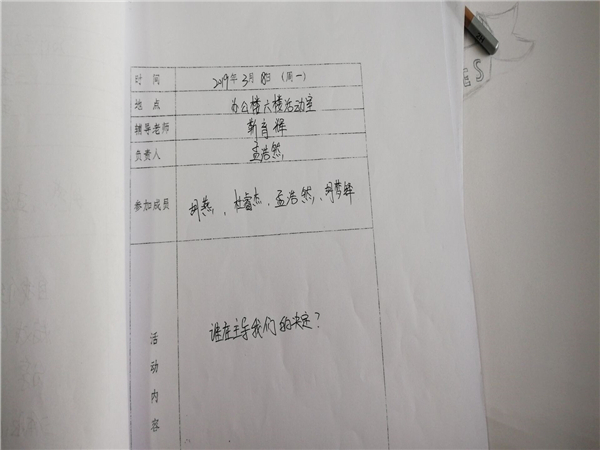 时 间 2019年3月18日 (周一)
地 点 办公楼六楼活动室
辅导老师 靳育辉
负责人 孟浩然
参加成员 胡燕、杜睿杰、孟浩然、胡梦铎
活动内容 谁在主导我们的决定?
ES